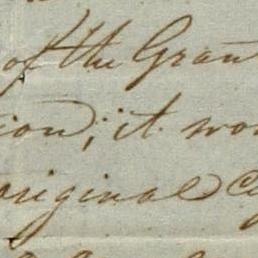 of the Gran
ion; it wo
original C